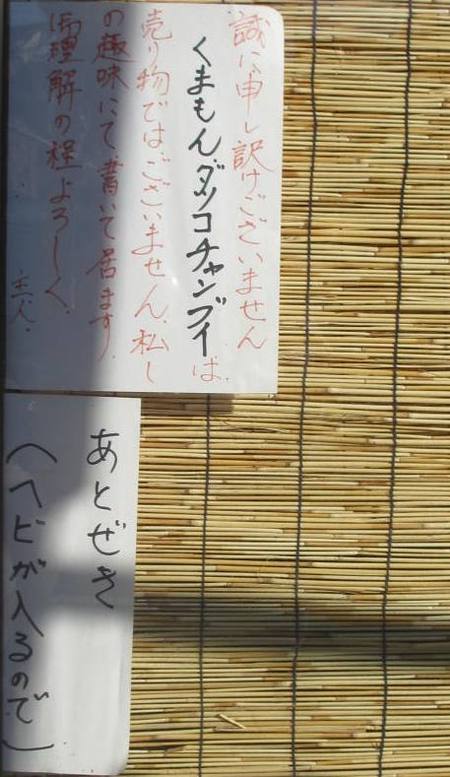 誠に申し訳けございません
くまもん、ダッコチャンブイは、
売り物ではございません、私し
の趣味にて書いて居ます、
御理解の程よろしく、
主人、
あとぜき
(ヘビが入るので)